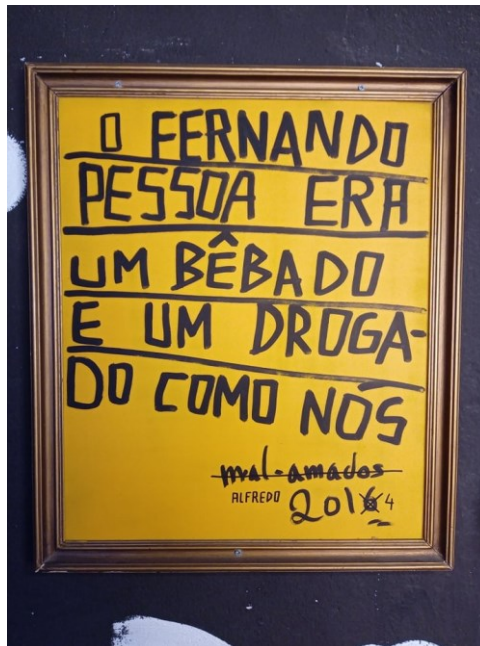 O FERNANDO
PESSOA ERA
UM BÊBADO
E UM DROGA-
DO COMO NÓS
mal-amados
ALFREDO 2016 4